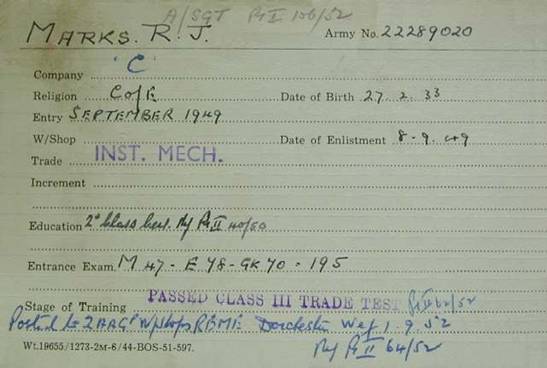 A/SGT Pt II 156/52
MARKS. R. J. Army No. 22289020
Company 'C'
Religion C of E Date of Birth 27. 2. 33
Entry SEPTEMBER 1949
W/Shop Date of Enlistment 8-9. 49
Trade INST. MECH.
Increment
Education 2nd Class Cert. Ref Pt II 40/50
Entrance Exam. M 47 - E 78 - GK 70 - 195
Stage of Training PASSED CLASS III TRADE TEST Pt II 62/52
Posted to 2 AAGP W/shops REME Dorchester Wef 1. 9. 52
Wt.19655/1273-2M-6/44-BOS-51-597. Ref Pt II 64/52